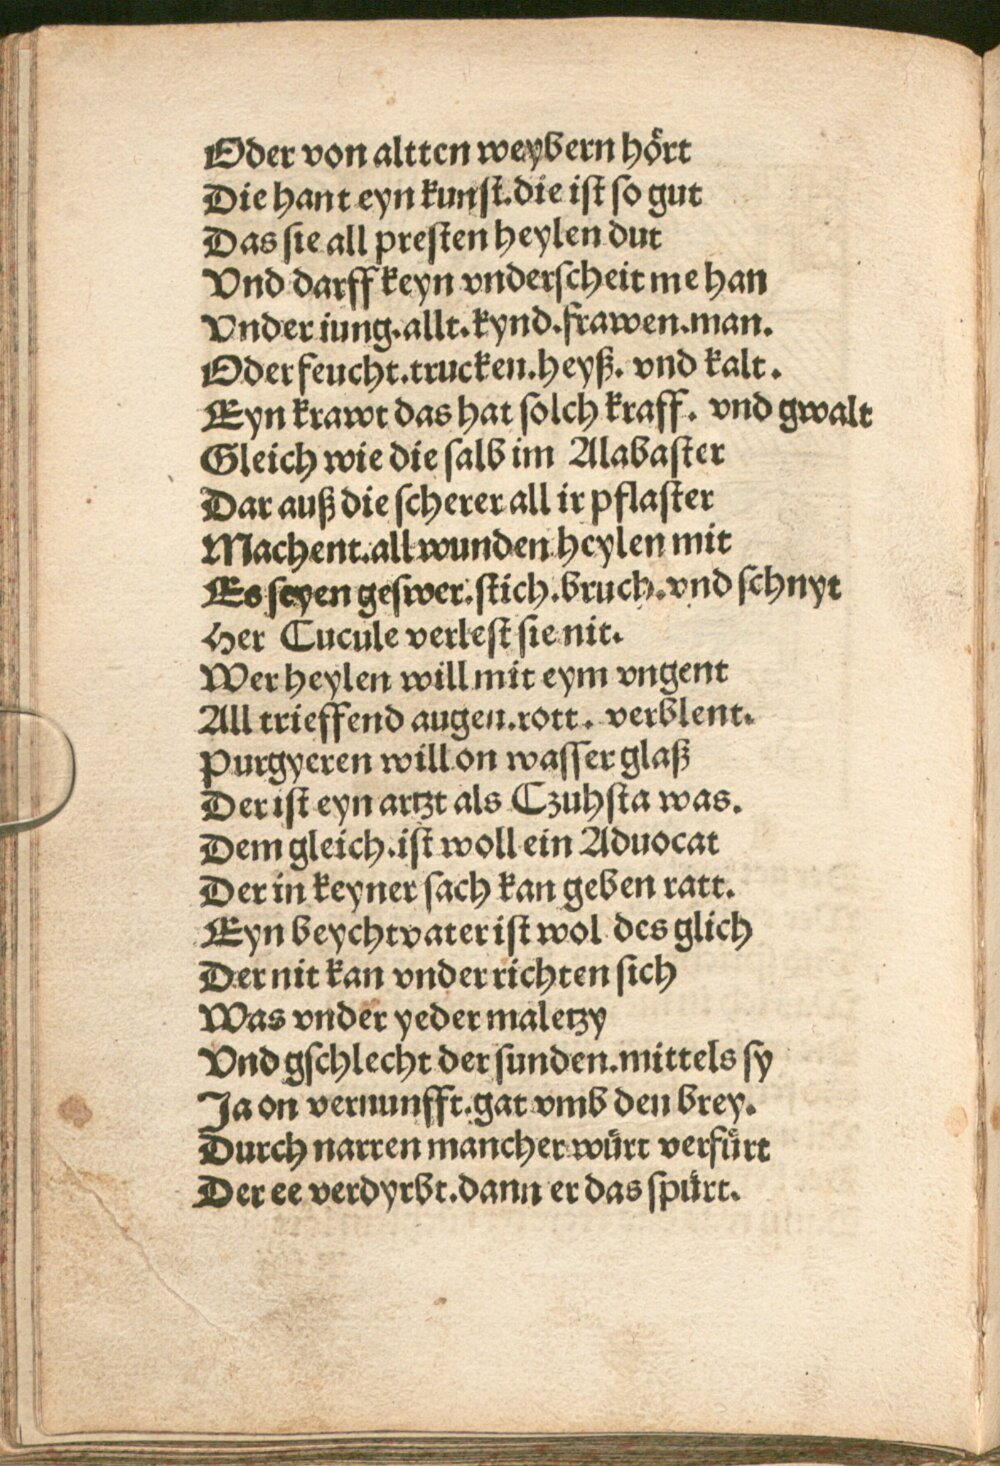 Oder von altten weybern hört
Die hant eyn kunst.die ist so gut
Das sie all presten heylen dut
Vnd darff keyn vnderscheit me han
Vnder iung.allt.kynd.frawen.man.
Oder feucht.trucken.heyß. vnd kalt.
Eyn krawt das hat solch kraff. vnd gwalt
Gleich wie die salb im Alabaster
Dar auß die scherer all ir pflaster
Machent.all wunden heylen mit
Es seyen geswer.stich.bruch.vnd schnyt
Her Cucule verlest sie nit.
Wer heylen will mit eym vngent
All trieffend augen.rott. verblent.
Purgyeren will on wasser glaß
Der ist eyn artzt als Czuhsta was.
Dem gleich.ist woll ein Aduocat
Der in keyner sach kan geben ratt.
Eyn beychtvater ist wol des glich
Der nit kan vnder richten sich
Was vnder yeder maletzy
Vnd gschlecht der sunden.mittels sy
Ja on vernunfft.gat vmb den brey.
Durch narren mancher würt verfürt
Der ee verdyrbt.dann er das spürt.